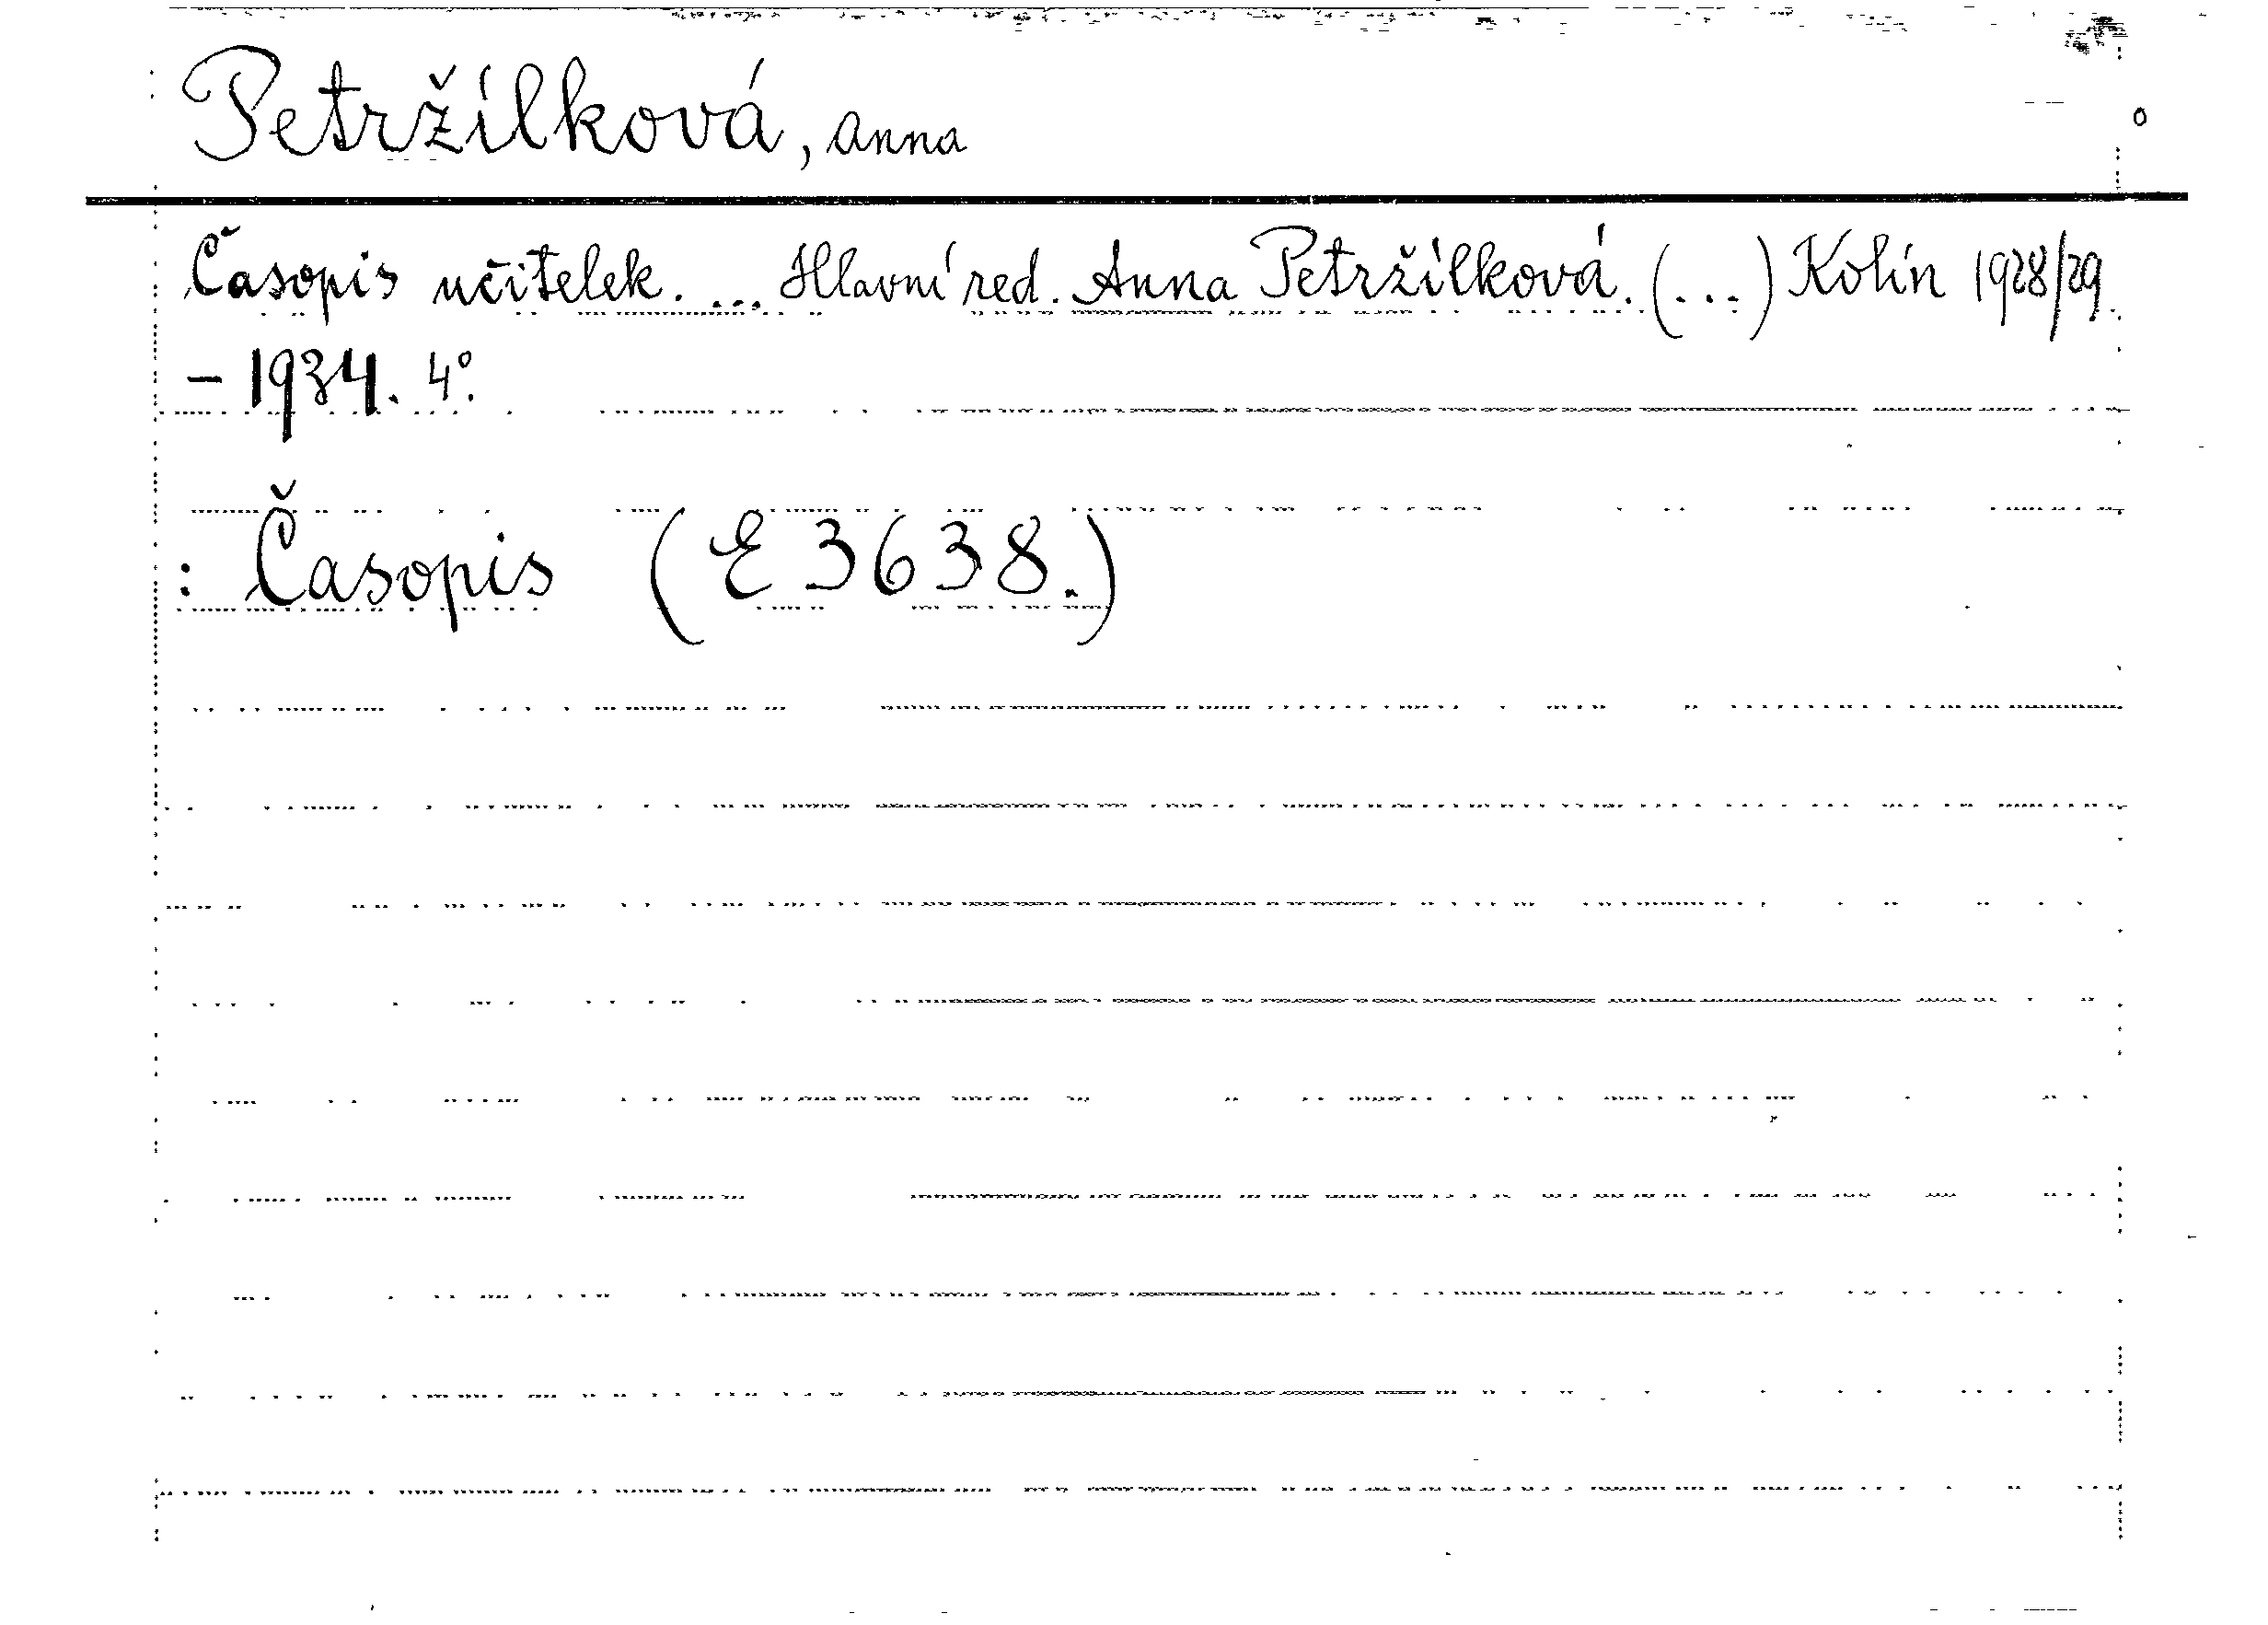 Petržílková, Anna
Časopis učitelek. ... Hlavní red. Anna Petržílková. (...) Kolín 1928/29
– 1934. 4°.
: Časopis (E 3638.)